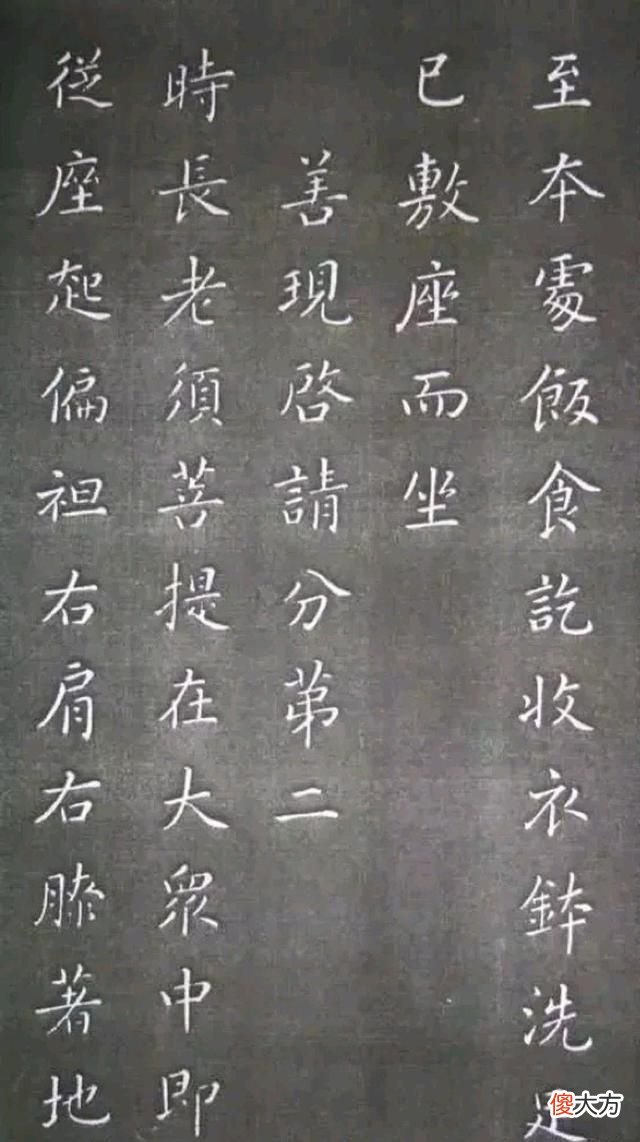 至本處飯食訖收衣鉢洗足
已敷座而坐
善現啓請分第二
時長老須菩提在大衆中即
從座起偏袒右肩右膝著地
傻大方